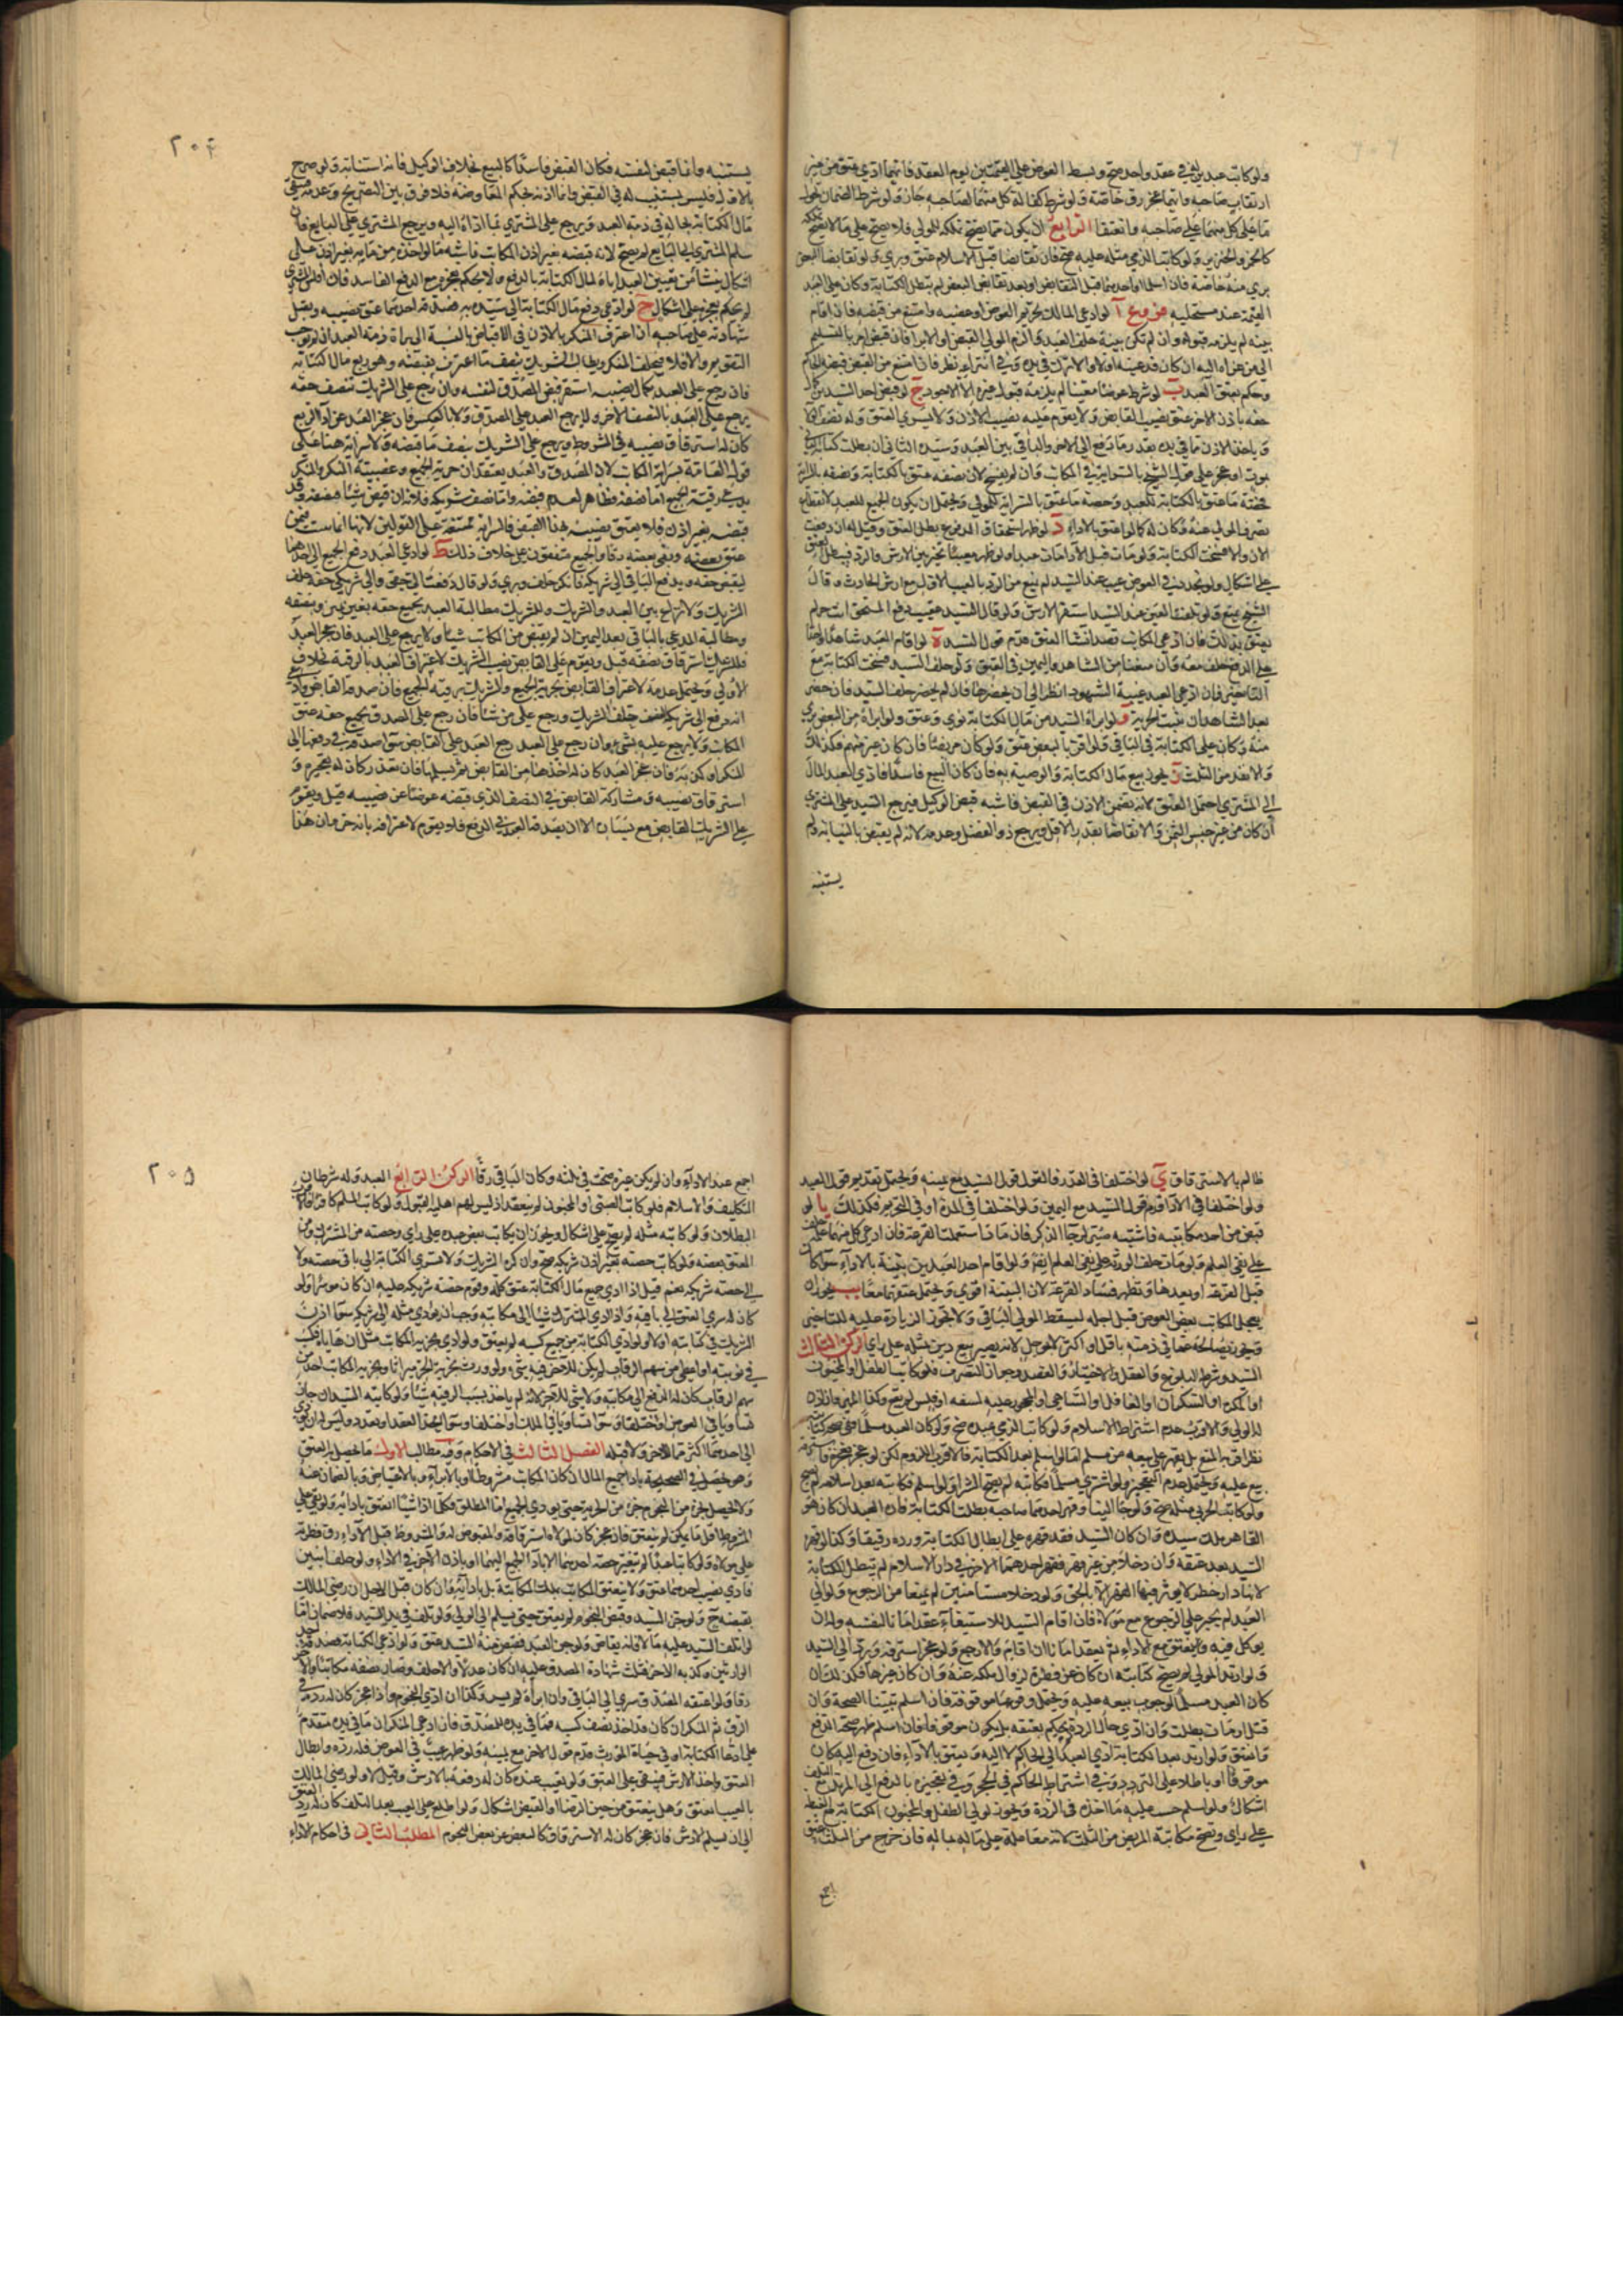 ولو كاتب عبدين في عقد واحد صح وبسط العوض على القيمتين يوم العقد فايهما ادى عتق من غير
ارتقاب صاحبه وايهما عجز رق خاصة ولو شرط كفالة كل منهما لصاحبه جاز ولو شرط الضمان تحول
ما على كل منهما على صاحبه وانعتقا الرابع ان يكون مما يصح تملكه للمولى فلا يصح على ما لا يصح تملكه
كالخمر والخنزير ولو كاتب الذمي مثله عليه صح فان تقابضا قبل الاسلام عتق وبرئ ولو تقابضا البعض
برئ منه خاصة فان اسلما او احدهما قبل التقابض او بعد تقابض البعض لم تبطل الكتابة وكان على العبد
القيمة عند مستحليه فروع آ لو ادعى المالك تحريم العوض او غصبه وامتنع من قبضه فان اقام
بينة لم يلزمه قبوله وان لم تكن بينة حلف العبد والزم المولى القبض او الابراء فان قبض امر بالتسليم
الى من عزاه اليه ان كان قد عينه اولا والا ترك في يده وفي انتزاعه نظر فان امتنع من القبض قبضه الحاكم
وحكم بعتق العبد ب لو شرط عوضا معينا لم يلزمه قبول غيره الا الاجود ج لو قبض احد السيدين كل
حقه باذن الاخر عتق نصيب القابض ولا يقوم عليه نصيب الاذن ولا يسري العتق
وياخذ الاذن مما في يده بقدر ما دفع الى الاخر والباقي بين العبد وسيده الثاني ان بطلت كتابة
بموت او عجز على قول الشيخ بالسراية في المكاتب وان لم يفسخ لان نصفه عتق بالكتابة ونصفه بالسراية
فحصة ما عتق بالكتابة للعبد وحصة ما عتق بالسراية للمولى ويحتمل ان يكون الجميع للعبد لانقطاع
تصرف المولى عنه فكان له كما لو اعتق بالاداء د لو ظهر استحقاق المدفوع بطل العتق وقيل له ان دفعت
الان والا فسخت الكتابة ولو مات قبل الاداء مات عبدا ولو ظهر معيبا تخير بين الارش والرد فيبطل العتق
على اشكال ولو تجدد في العوض عيب عند السيد لم يمنع من الرد بالعيب الاول مع ارش الحادث وقال
الشيخ يمنع ولو تلفت العين عند السيد استقر الارش ولو قال السيد عقيب دفع المستحق انت حر لم
يعتق بذلك فان ادعى المكاتب قصد انشاء العتق قدم قول السيد ه لو اقام العبد شاهدا واحدا
على الدفع حلف معه وان منعنا من الشاهد واليمين في العتق ولو حلف السيد فسخت الكتابة مع
التاخير فان ادعى العبد غيبة الشهود انظر الى ان يحضرها فان لم يحضر حلف السيد فان حضر
بعد الشاهدان ثبتت الحرية و لو ابراه السيد من مال الكتابة برئ وعتق ولو ابراه من البعض برئ
منه وكان على الكتابة في الباقي ولو اقر بالبعض عتق ولو كان مريضا فان كان غير متهم فكذلك
والا نفذ من الثلث ز يجوز بيع مال الكتابة والوصية به فان كان البيع فاسدا فادى العبد المال
الى المشتري احتمل العتق لانه تضمن الاذن في القبض فاشبه قبض الوكيل فيرجع السيد على المشتري
ان كان من غير جنس الثمن والا تقاصا بقدر الاقل ويرجع ذو الفضل وعدمه لانه لم يقبض بالنيابة ولم
يستنبه
٢٠٤
يستنبه وانما قبض لنفسه فكان القبض فاسدا كالبيع بخلاف الوكيل فانه استنابة ولو صرح
بالاذن فليس يستنيب له في القبض وانما اذنه بحكم المعاوضة فلا فرق بين التصريح وعدمه فيبقى
مال الكتابة بحاله في ذمة العبد ويرجع على المشتري بما اداه اليه ويرجع المشتري على البايع فان
سلم المشتري الى البايع لم يصح لانه قبضه بغير اذن المكاتب فاشبه ما لو اخذه من ماله بغير اذن على
اشكال ينشا من تعيين العبد اياه لمال الكتابة بالدفع ولا يحكم بعجزه مع الدفع الفاسد فان
لم يحكم بعجزه على اشكال ح لو ادعى دفع مال الكتابة الى سيديه فصدقه احدهما عتق نصيبه ويقبل
شهادته على صاحبه ان اعترف المنكر بالاذن في الاقباض بالنسبة الى براة ذمة العبد ان لم نوجب
التقويم والا فلا فيحلف المنكر ويطالب الشريك بنصف ما اعترف بقبضه وهو ربع مال كتابته
فان رجع على العبد بكمال نصيبه استقر قبض المصدق لنفسه وان رجع على الشريك بنصف حقه
يرجع على العبد بالنصف الاخر ولا يرجع العبد على المصدق ولا بالعكس فان عجز العبد عن اداء الربع
كان له استرقاق نصيبه في المشروط ويرجع على الشريك بنصف ما قبضه ولا سراية هنا على
قول العامة بسراية المكاتب لان المصدق والعبد يعتقدان حرية الجميع وغصبية المنكر والمنكر
يدعي رقية الجميع اما نصفه فظاهر لعدم قبضه واما نصف شريكه فلانه ان قبض شيئا فنصفه وقد
قبضه بغير اذن فلا يعتق نصيبه بهذا القبض فالسراية ممتنعة على القولين لانها انما تثبت فيمن
عتق بعضه وبقي بعضه رقا والجميع متفقون على خلاف ذلك ط لو ادعى العبد دفع الجميع الى احدهما
ليقبض حقه ويدفع الباقي الى شريكه فانكر حلف وبرئ ولو قال دفعت الي حقي والى شريكي حقه حلف
الشريك ولا نزاع بين العبد والشريك وللشريك مطالبة العبد بجميع حقه بغير يمين وبنصفه
ومطالبة المدعي بالباقي بعد اليمين انه لم يقبض من المكاتب شيئا ولا يرجع على العبد فان عجز العبد
فللشريك استرقاق نصفه قيل ويقوم على القابض نصيب الشريك لاعتراف العبد بالرقية بخلاف
الاولى ويحتمل عدمه لاعتراف القابض بحرية الجميع والشريك برقية الجميع فان صدقه القابض وادعى
انه دفع الى شريكه النصف حلف الشريك ورجع على من شاء فان رجع على المصدق بجميع حقه عتق
المكاتب ولا يرجع عليه بشيء وان رجع على العبد رجع العبد على القابض سواء صدقه في دفعها الى
المنكر او كذبه فان عجز العبد كان له اخذها من القابض ثم يسلمها فان تعذر كان له تعجيزه و
استرقاق نصيبه ومشاركة القابض في النصف الذي قبضه عوضا عن نصيبه قيل ويقوم
على الشريك القابض مع الا ان يصدقه العبد في الدفع فلا يقوم لاعترافه بانه حر وان هذا
ظالم بالاسترقاق ي لو اختلفا في القدر فالقول قول السيد مع يمينه ويحتمل تقديم قول العبد
ولو اختلفا في الاداء قدم قول السيد مع اليمين ولو اختلفا في المدة او في النجوم فكذلك يا لو
قبض من احد مكاتبيه فاشتبه صبر لرجاء التذكر فان مات استعملت القرعة فان ادعى كل منهما علمه حلف
على نفي العلم ولو مات حلف الورثة على نفي العلم ايضا ولو اقام احد العبدين بينة بالاداء سواء كانت
قبل القرعة او بعدها وتظهر فساد القرعة لان البينة اقوى ويحتمل عتقهما معا يب يجوز ان
يعجل المكاتب بعض العوض قبل اجله ليسقط المولى الباقي ولا تجوز الزيادة عليه للتاخير
ويجوز مصالحته عما في ذمته باقل او اكثر لا بمؤجل لانه يصير بيع دين بمثله على راي الركن الثالث
السيد وشرطه البلوغ والعقل والاختيار والقصد وجواز التصرف فلو كاتب الطفل او المجنون
او المكره او السكران او الغافل او الساهي او المحجور عليه لسفه او فلس لم يقع وكذا المريض فان اذن
له الولي والاقرب عدم اشتراط الاسلام ولو كاتب الذمي عبده صح ولو كان العبد مسلما ففي صحة كتابته
نظر اقربه المنع بل يقهر على بيعه من مسلم اما لو اسلم بعد الكتابة فالاقرب اللزوم لكن لو عجز فعجزه
بيع عليه ويحتمل عدم التعجيز ولو اشترى مسلما فكاتبه لم يصح الشراء ولو اسلم فكاتبه بعد اسلامه لم يصح
ولو كاتب الحربي مثله صح ولو جاءا الينا وقهر احدهما صاحبه بطلت الكتابة فان العبد ان كان هو
القاهر ملك سيده وان كان السيد فقد قهره على ابطال الكتابة ورده رقيقا وكذا لو قهر
السيد بعد عتقه وان دخلا من غير قهر فقهر احدهما الاخر في دار الاسلام لم تبطل الكتابة
لانها دار حظر لا يؤثر فيها القهر الا بالحق ولو دخلا مستامنين لم يمنعا من الرجوع ولو ابى
العبد لم يجبر على الرجوع مع مولاه فان اقام السيد للاستيفاء عقد امانا لنفسه وله ان
يوكل فيه ويعتق مع الاداء ثم يعقد امانا ان اقام والا رجع ولو عجز استرق ورد الى السيد
ولو ارتد المولى لم يصح كتابته ان كان عن فطرة لزوال ملكه عنه وان كان عن غيرها فكذلك ان
كان العبد مسلما لوجوب بيعه عليه ويحتمل وقوعها موقوفة فان اسلم تبينا الصحة وان
قتل او مات بطلت وان ادى حال الردة لم يحكم بعتقه بل يكون موقوفا فان اسلم ظهر صحة الدفع
والعتق ولو ارتد بعد الكتابة ادى العبد الى الحاكم لا اليه ويعتق بالاداء فان دفع اليه كان
موقوفا او باطلا على التردد وفي اشتراط الحاكم في الحجر وفي تعجيزه بالدفع الى المرتد مع التلف
اشكال ولو اسلم حسب عليه ما اخذه في الردة ويجوز لولي الطفل والمجنون الكتابة مع الغبطة
على راي وتصح مكاتبة المريض من الثلث لانه معاملة على ماله بماله فان خرج من الثلث عتق
اجمع
٢٠٥
اجمع عند الاداء وان لم يكن غيره صحت في ثلثه وكان الباقي رقا الركن الرابع العبد وله شرطان
التكليف والاسلام فلو كاتب الصبي او المجنون لم ينعقد اذ ليس لهما اهلية القبول ولو كاتب المسلم كافرا فالاقرب
البطلان ولو كاتبه مثله لم يصح على اشكال ويجوز ان يكاتب بعض عبده على راي وحصته من المشترك ومن
المعتق بعضه ولو كاتب حصته بغير اذن شريكه صح وان كره الشريك ولا تسري الكتابة الى باقي حصته ولا
الى حصة شريكه نعم قيل اذا ادى جميع مال الكتابة عتق كله وقوم حصة شريكه عليه ان كان موسرا ولو
كان له سرى العتق الى باقيه واذا ادى المشترك شيئا الى مكاتبه وجب ان يؤدي مثله الى شريكه سواء اذن
الشريك في كتابته او لا ولو ادى الكتابة من جميع كسبه لم يعتق ولو ادى بجزئه المكاتب مثل ان هاياه فكسب
في نوبته او اعطي من سهم الرقاب لم يكن للاخر فيه شيء ولو ورث بجزئه الحر ميراثا وبجزئه المكاتب اخذ من
سهم الرقاب كان له الدفع الى مكاتبه ولا شيء للاخر لانه لم ياخذ بسبب الرقية شيئا ولو كاتبه السيدان جاز
تساويا في العوض او اختلفا وسواء تساويا في الملك او اختلفا وسواء اتحد العقد او تعدد وليس له ان يؤدي
الى احدهما اكثر من الاخر ولا قبله الفصل الثالث في الاحكام وفيه مطالب الاول فيما يحصل به العتق
وهو يحصل في الصحيحة باداء جميع المال ان كان المكاتب مشروطا او بالابراء وبالاعتياض وبالضمان عنه
ولا يحصل بجزء من النجوم جزء من الحرية حتى يؤدي الجميع اما المطلق فكلما ادى شيئا انعتق بادائه ولو بقي على
المشروط اقل ما يمكن لم ينعتق فان عجز كان لمولاه استرقاقه والمقبوض له والمشروط قبل الاداء رق فطرته
على مولاه ولو كاتبا عبدا لم تتغير حصة احدهما الا باداء الجميع اليهما او باذن الاخر في الاداء ولو خلف ابنين
فادى نصيب احدهما عتق ولا ينعتق المكاتب بملك المكاتبة بل بادائه فان كان قبل الاجل ان رضي المالك
بقبضه صح ولو جن السيد وقبض النجوم لم يعتق حتى يسلم الى الولي ولو تلف في يد السيد فلا ضمان اما
لو اتلف السيد عليه مالا فانه يقاص ولو جن العبد فقبض منه السيد عتق ولو ادعى الكتابة فصدقه احد
الوارثين وكذبه الاخر قبلت شهادة المصدق عليه ان كان عدلا والا حلف وصار نصفه مكاتبا والاخر
رقا ولو اعتقه المصدق سرى الى الباقي وان ابراه لم يسر وكذا ان ادى النجوم واذا عجز كان له رده في
الرق ثم المنكر ان كان قد اخذ نصف كسبه فما في يده للمصدق فان ادعى المنكر ان ما في يده متقدم
على ادعاء الكتابة او في حياة المورث قدم قول الاخر مع يمينه ولو ظهر عيب في العوض فله رده وابطال
العتق واخذ الارش فيبقى على العتق ولو تعيب عنده كان له دفعه بالارش وقيل لا ولو رضي المالك
بالعيب انعتق وهل ينعتق من حين الرضا او القبض اشكال ولو اطلع على العيب بعد التلف كان له رد العتق
الى ان يسلم الارش فان عجز كان له الاسترقاق كالعجز عن بعض النجوم المطلب الثاني في احكام الاداء